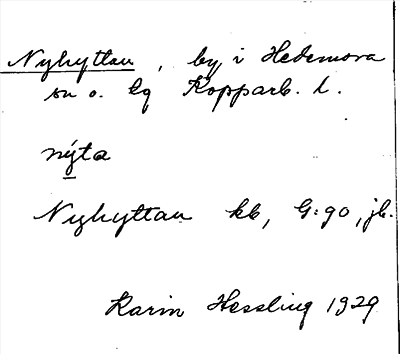 Nyhyttan, by i Hedemora
sn o. lg Kopparb. l.
nýta
Nyhyttan kb, G:90, jb.
Karin Hessling 1929